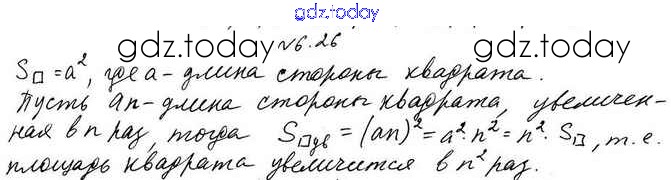 gdz.today
№6.26
gdz.today gdz.today
S□ = a², где a - длина стороны квадрата.
Пусть an - длина стороны квадрата, увеличен-
ная в n раз, тогда S□ув = (an)² = a²·n² = n²·S□, т.е.
площадь квадрата увеличится в n² раз.
gdz.today gdz.today